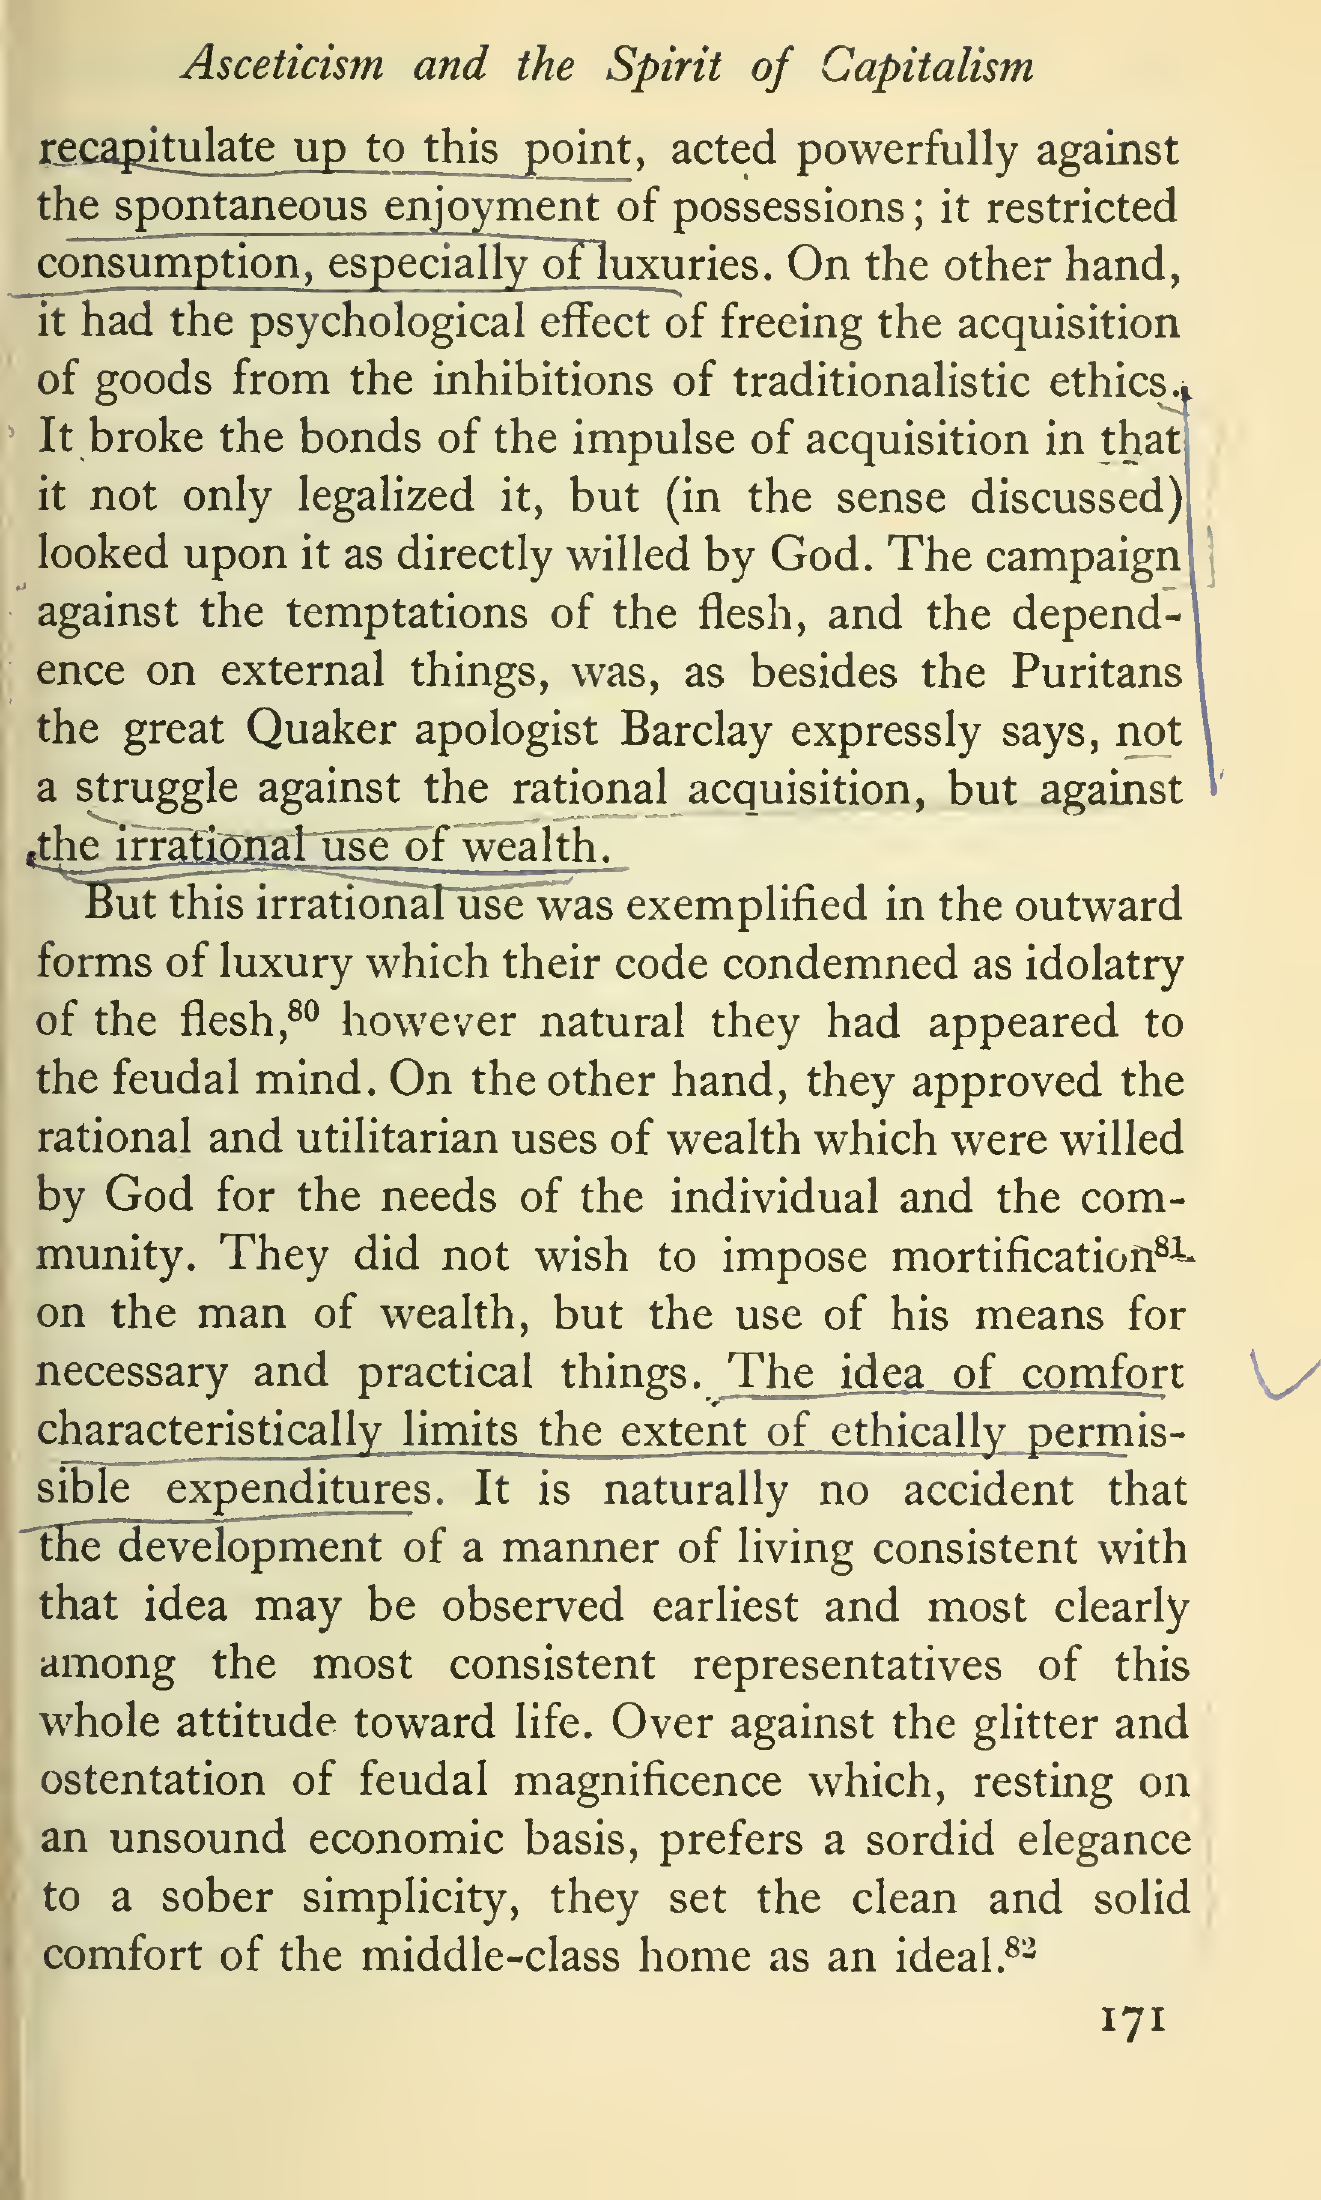 Asceticism and the Spirit of Capitalism
recapitulate up to this point, acted powerfully against
the spontaneous enjoyment of possessions; it restricted
consumption, especially of luxuries. On the other hand,
it had the psychological effect of freeing the acquisition
of goods from the inhibitions of traditionalistic ethics.
It broke the bonds of the impulse of acquisition in that
it not only legalized it, but (in the sense discussed)
looked upon it as directly willed by God. The campaign
against the temptations of the flesh, and the depend-
ence on external things, was, as besides the Puritans
the great Quaker apologist Barclay expressly says, not
a struggle against the rational acquisition, but against
the irrational use of wealth.
But this irrational use was exemplified in the outward
forms of luxury which their code condemned as idolatry
of the flesh,⁸⁰ however natural they had appeared to
the feudal mind. On the other hand, they approved the
rational and utilitarian uses of wealth which were willed
by God for the needs of the individual and the com-
munity. They did not wish to impose mortification⁸¹
on the man of wealth, but the use of his means for
necessary and practical things. The idea of comfort
characteristically limits the extent of ethically permis-
sible expenditures. It is naturally no accident that
the development of a manner of living consistent with
that idea may be observed earliest and most clearly
among the most consistent representatives of this
whole attitude toward life. Over against the glitter and
ostentation of feudal magnificence which, resting on
an unsound economic basis, prefers a sordid elegance
to a sober simplicity, they set the clean and solid
comfort of the middle-class home as an ideal.⁸²
171